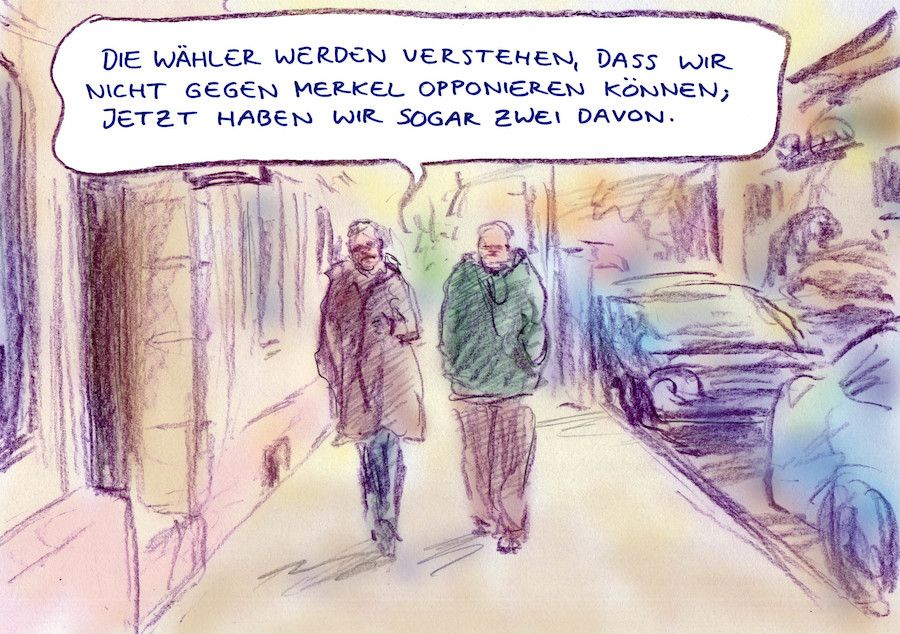 DIE WÄHLER WERDEN VERSTEHEN, DASS WIR
NICHT GEGEN MERKEL OPPONIEREN KÖNNEN;
JETZT HABEN WIR SOGAR ZWEI DAVON.